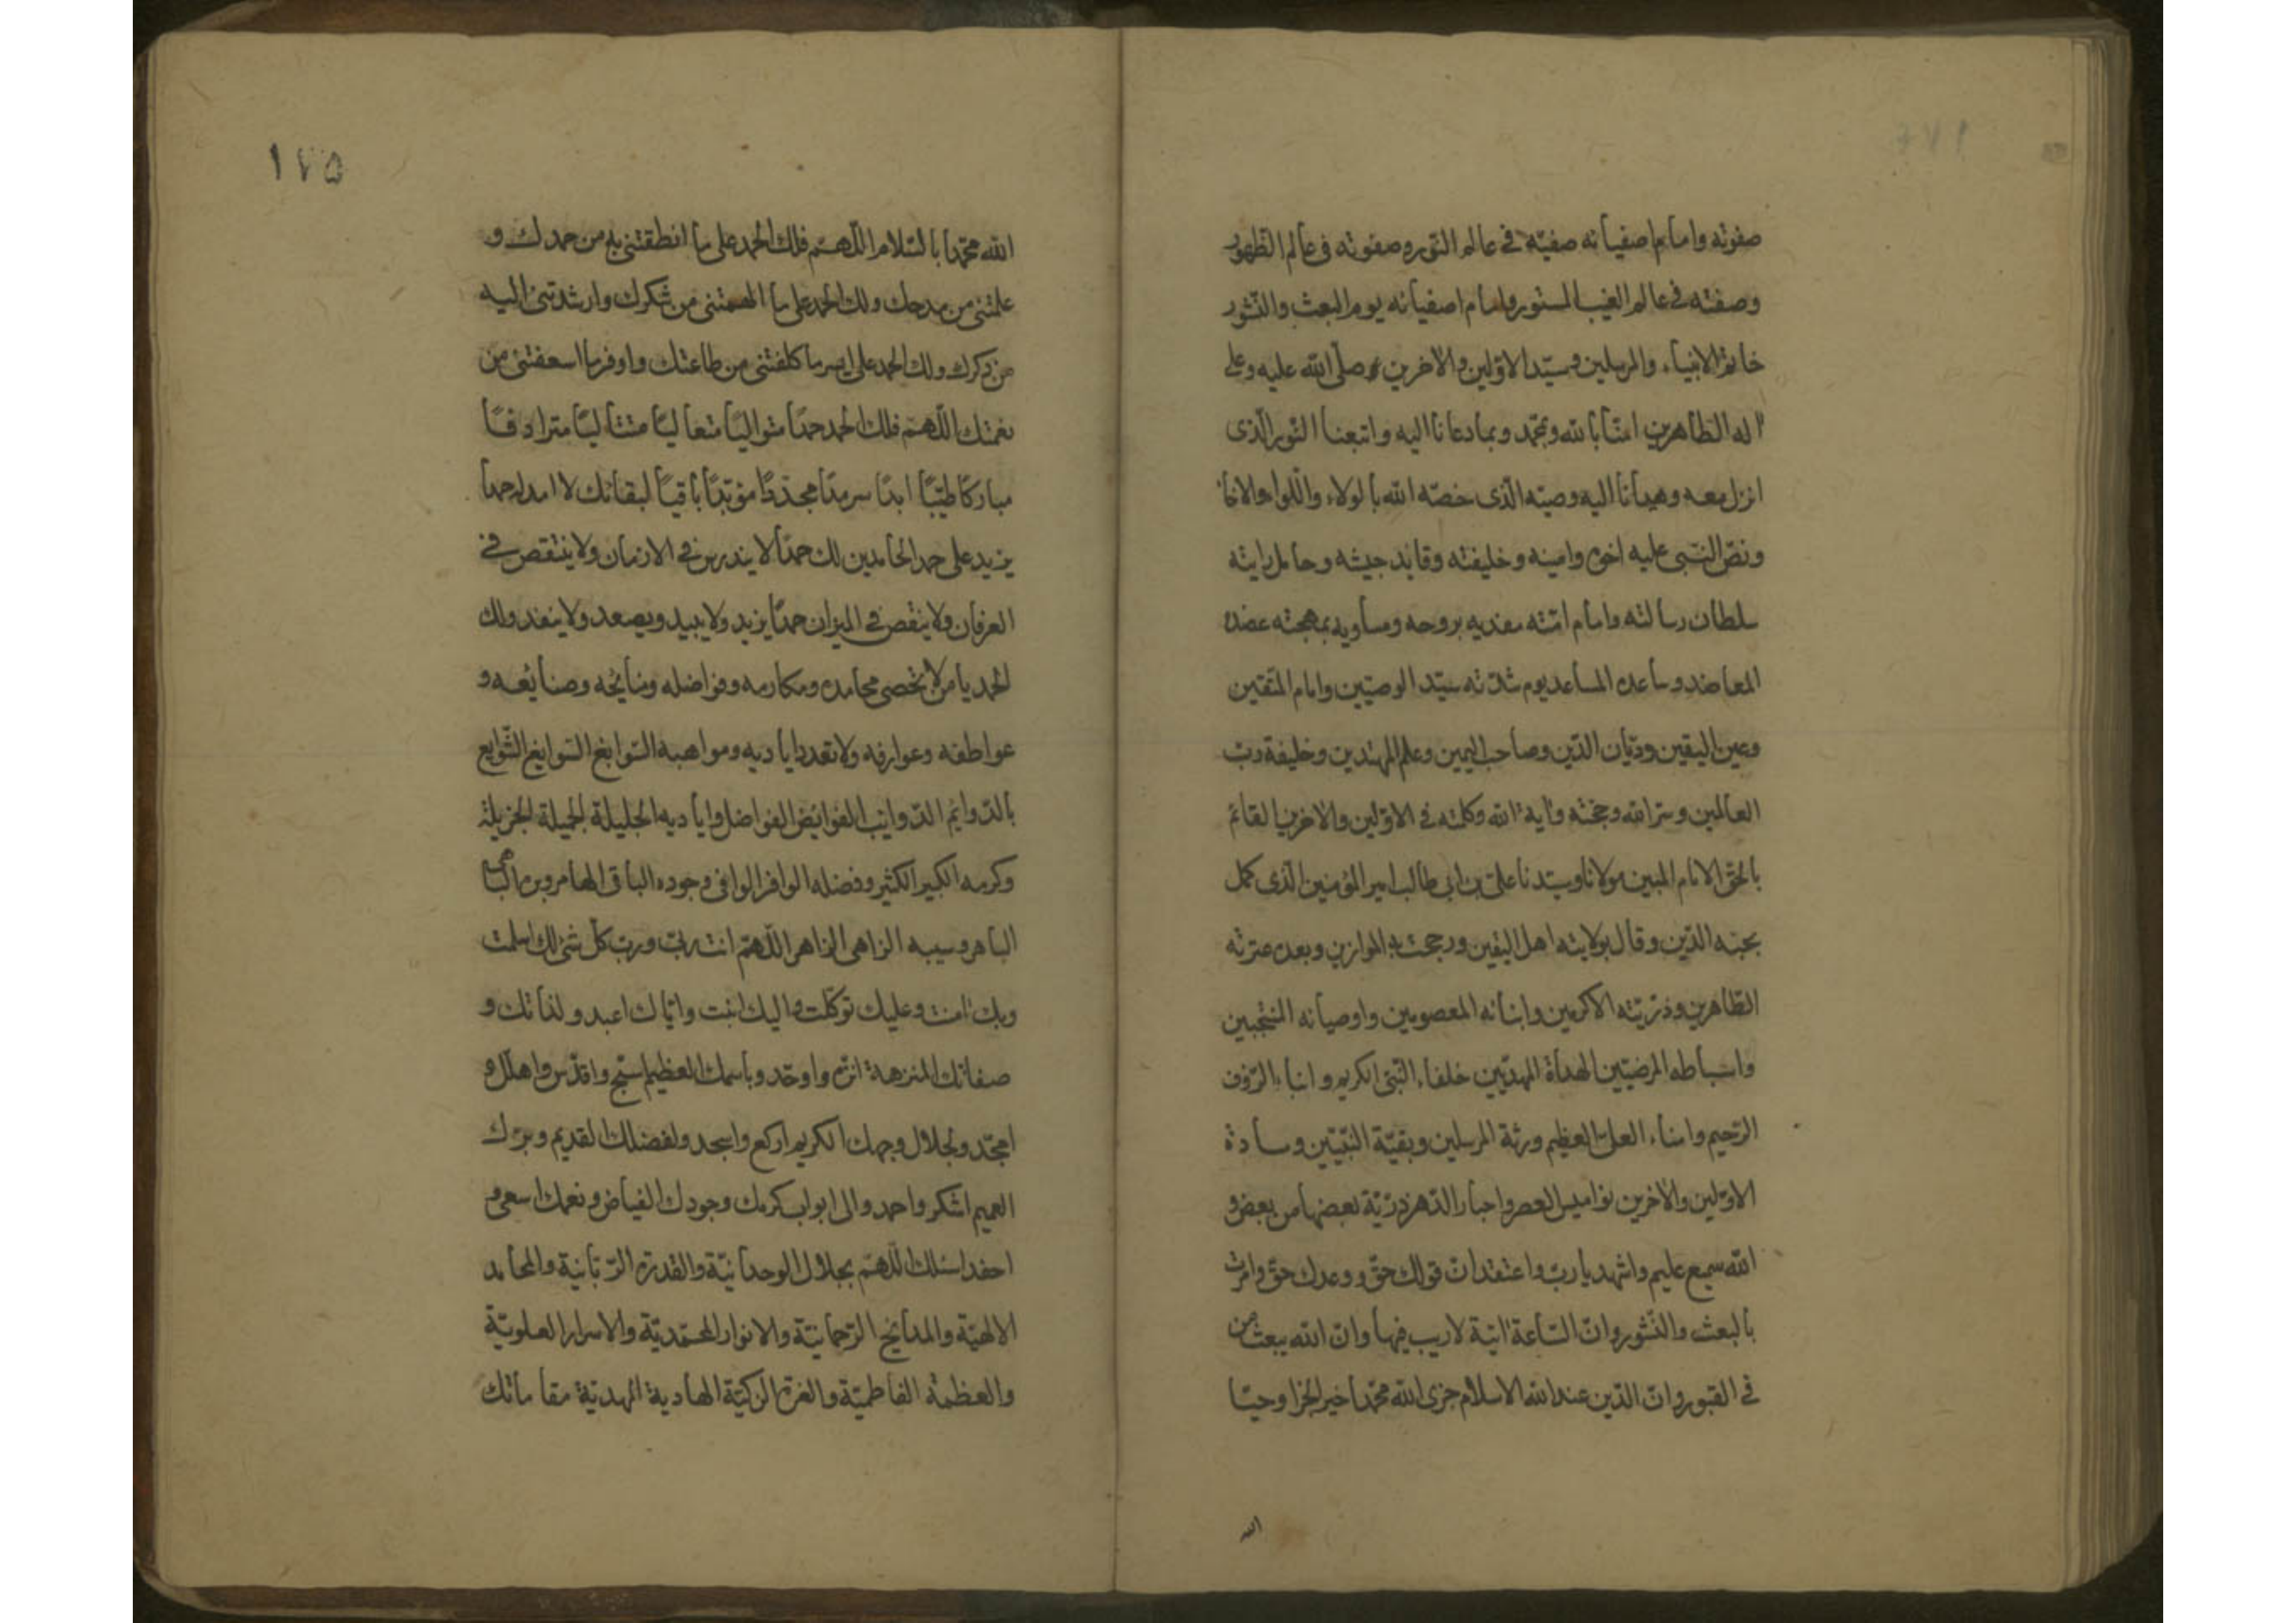 صفوته وامام اصفيائه صفيّه في عالم النّور وصفوته في عالم الظهور
وصفته في عالم الغيب المستور وامام اصفيائه يوم البعث والنّشور
خاتم الانبياء والمرسلين وسيّد الاوّلين والاخرين صلّى الله عليه وعلى
اله الطّاهرين امنّا بالله وبمحمّد وبما دعانا اليه واتبعنا النّور الّذى
انزل معه وهدانا اليه وصيّه الّذى خصّه الله بالولاء واللّواء والاخاء
ونصّ النّبى عليه اخوه وامينه وخليفته وقايد جيشه وحامل رايته
سلطان رسالته وامام امّته مفديه بروحه ومساويه بمهجته عضده
المعاضد وساعده المساعد يوم شدّته سيّد الوصيّين وامام المتّقين
وعين اليقين وديّان الدّين وصاحب اليمين وعلم المهتدين وخليفة ربّ
العالمين وسرّ الله وحجّته واية الله وكلمته في الاوّلين والاخرين القائم
بالحقّ الامام المبين مولانا وسيّدنا علىّ بن ابى طالب امير المؤمنين الّذى كمل
بحبّه الدّين وقال بولايته اهل اليقين ورجحت به الموازين وبعده عترته
الطّاهرين وذرّيّته الاكرمين وابنائه المعصومين واوصيائه المنتجبين
واسباطه المرضيّين الهداة المهديّين خلفاء النّبىّ الكريم وابناء الرّؤف
الرّحيم وامناء العلىّ العظيم ورثة المرسلين وبقيّة النّبيّين وسادة
الاوّلين والاخرين نواميس العصر واحبار الدّهر ذرّيّة بعضها من بعض و
الله سميع عليم واشهد يا ربّ واعتقد انّ قولك حقّ ووعدك حقّ وامرت
بالبعث والنّشور وانّ السّاعة اتية لاريب فيها وانّ الله يبعث من
في القبور وانّ الدّين عند الله الاسلام جزى الله محمّدا خير الجزا وحيّا
الله
١٧٥
الله محمّدا بالسّلام اللّهمّ فلك الحمد على ما انطقتنى به من حمدك و
علمتنى من مدحك ولك الحمد على ما الهمتنى من شكرك وارشدتنى اليه
من ذكرك ولك الحمد على ايسر ما كلفتنى من طاعتك واوفر ما اسعفتنى من
نعمتك اللّهمّ فلك الحمد حمدًا متواليًا متعاليًا متتاليًا مترادفًا
مباركًا طيّبًا ابدًا سرمدًا مجدّدًا مؤبّدًا باقيًا لبقائك لا امد له حمدا
يزيد على حمد الحامدين لك حمدًا لا يندرس في الازمان ولا ينتقص في
العرفان ولا ينقص في الميزان حمدًا يزيد ولا يبيد ويصعد ولا ينفد ولك
الحمد يا من لا تحصى محامده ومكارمه وفواضله ومنايحه وصنايعه و
عواطفه وعوارفه ولا تعدد اياديه ومواهبه السّوابغ السّوايغ الشّوايع
بالدّوايم الدّوائب الفوايض الفواضل واياديه الجليلة الجميلة الجزيلة
وكرمه الكبير الكثير وفضله الوافر الوافى وجوده الباقى الهامر وبره
الباهر وسيبه الزاهى الزاهر اللّهمّ انت ربّى وربّ كلّ شئ لك اسلمت
وبك امنت وعليك توكّلت واليك انبت وايّاك اعبد ولذاتك و
صفاتك المنزهة انزّه واوحّد وباسمك العظيم اسبّح واقدّس واهلّل و
امجّد ولجلال وجهك الكريم اركع واسجد ولفضلك القديم وبرّك
العميم اشكر واحمد والى ابواب كرمك وجودك الفيّاض ونعمك اسعى و
احفد اسئلك اللّهمّ بجلال الوحدانيّة والقدرة الرّبّانية والمحامد
الالهيّة والمدائح الرّحمانيّة والانوار المحمّديّة والاسرار العلويّة
والعظمة الفاطميّة والغرة الزكيّة الهادية المهديّة مقاماتك